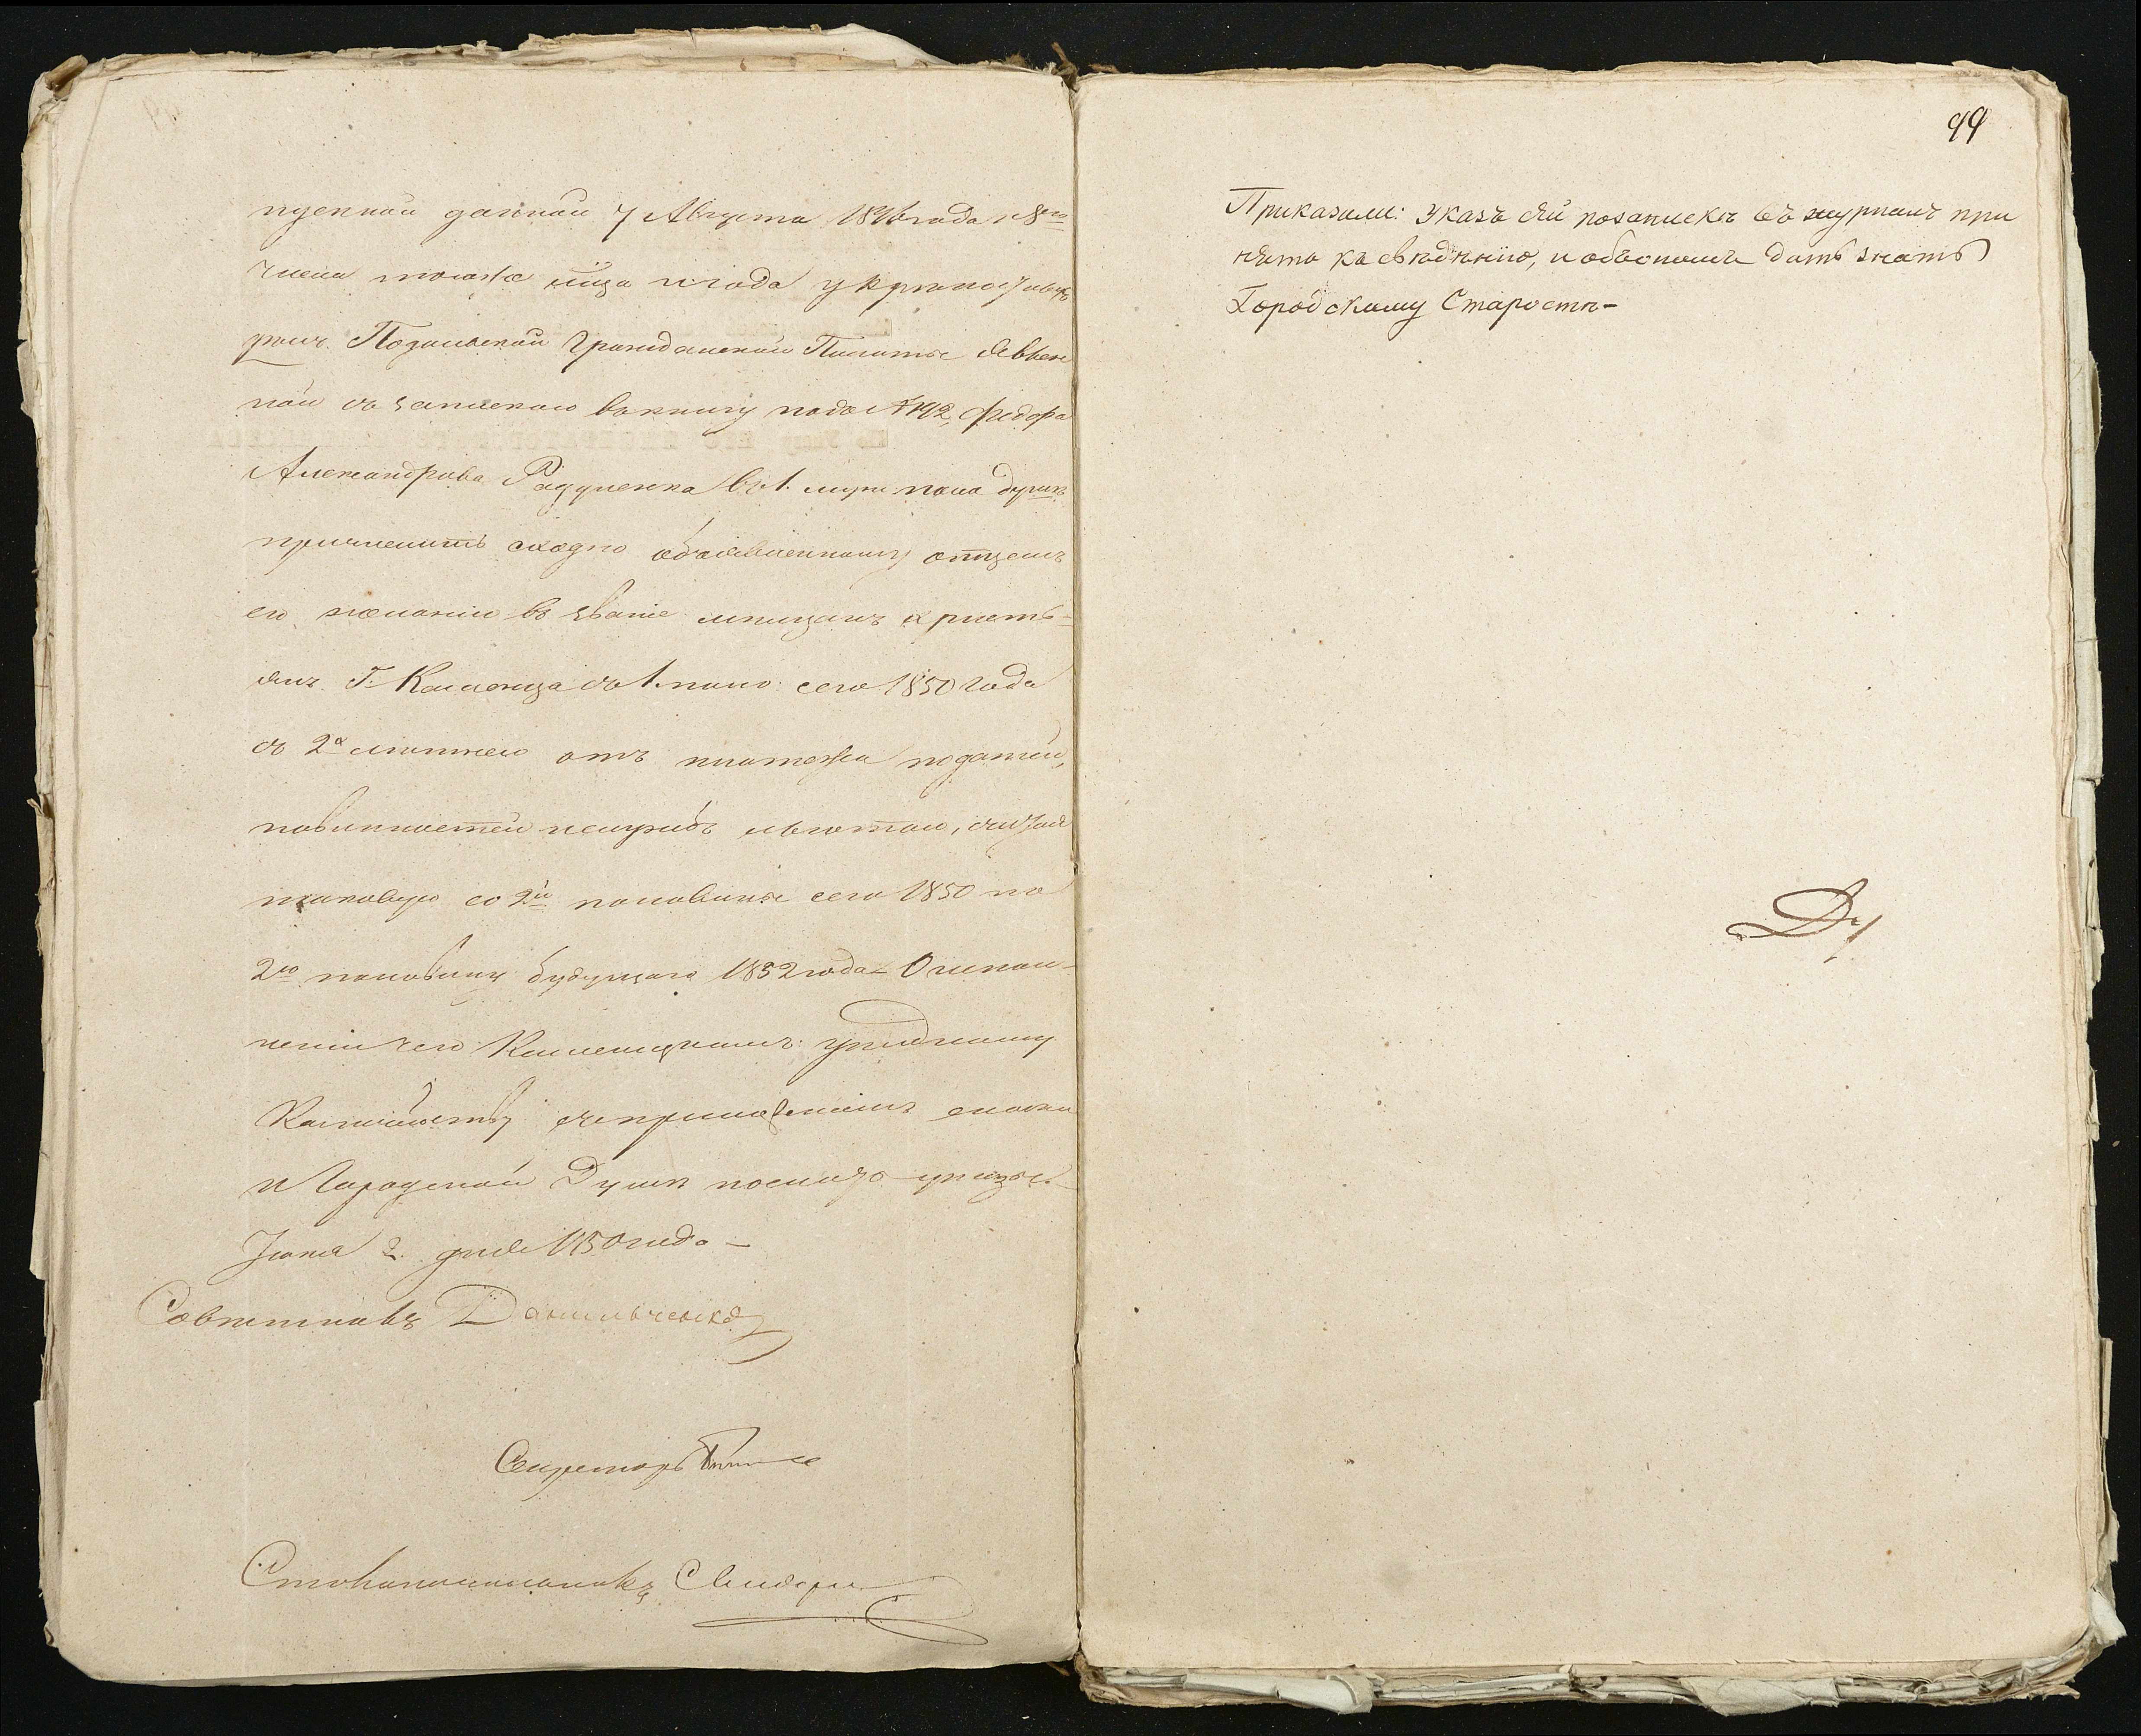 пускной данной 7 Августа 1846 года и 8го
числа того же мца и года у крѣпост. дѣлъ
Подольской Гражданской Палаты явлен
ной съ запискою въ книгу подъ № 192, Федора
Александрова Радуленка въ 1. муж: пола душѣ
причислить сходно объявленному отцемъ
его желанію въ званіе мѣщанъ христі-
янъ Г. Каменца съ 1. полов: сего 1850 года
съ 2х лѣтнею отъ платежа податей,
повинностей льготою, считая
таковую со 2й половины сего 1850 по
2ю половину будущаго 1852 года. О испол-
неніи чего Каменецкимъ: уѣздному
Казначейству
и Городской Думѣ послать указы.
Іюня 2 дня 1850 года —
Совѣтникъ Данильченко
Секретарь
Столоначальникъ
99
Приказали: Указъ сей по запискѣ въ журналъ при
нять къ свѣдѣнію, и объ ономъ дать знать
Городскому Старостѣ-